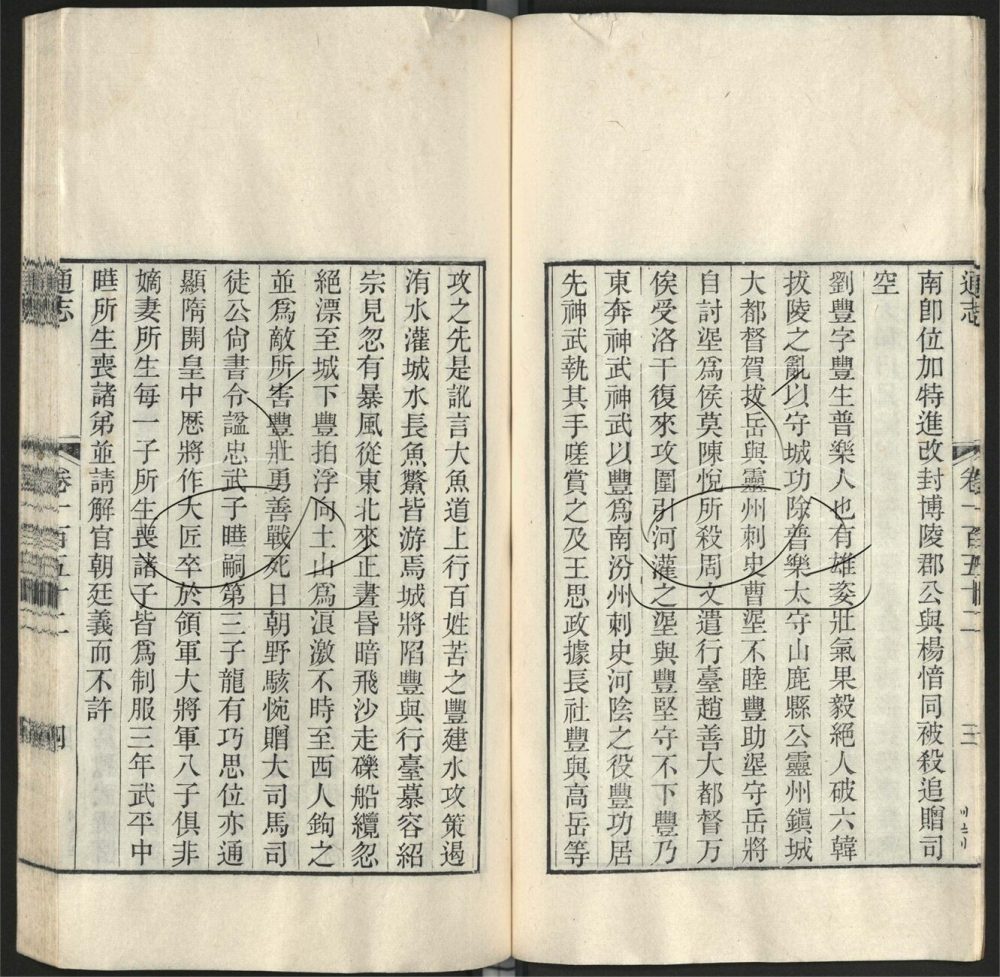 通志
卷一百五十二
三
南卽位加特進改封博陵郡公與楊愔同被殺追贈司
空
劉豐字豐生普樂人也有雄姿壯氣果毅絕人破六韓
拔陵之亂以守城功除普樂太守山鹿縣公靈州鎮城
大都督賀拔岳與靈州刺史曹埿不睦豐助埿守岳將
自討埿爲侯莫陳悅所殺周文遣行臺趙善大都督万
俟受洛干復來攻圍引河灌之埿與豐堅守不下豐乃
東奔神武神武以豐爲南汾州刺史河陰之役豐功居
先神武執其手嗟賞之及王思政據長社豐與高岳等
攻之先是訛言大魚道上行百姓苦之豐建水攻策遏
洧水灌城水長魚鱉皆游焉城將陷豐與行臺慕容紹
宗見忽有暴風從東北來正晝昏暗飛沙走礫船纜忽
絕漂至城下豐拍浮向土山爲浪激不時至西人鉤之
並爲敵所害豐壯勇善戰死日朝野駭惋贈大司馬司
徒公尚書令諡忠武子㬢嗣第三子龍有巧思位亦通
顯隋開皇中歷將作大匠卒於領軍大將軍八子俱非
嫡妻所生每一子所生喪諸子皆爲制服三年武平中
㬢所生喪諸弟並請解官朝廷義而不許
通志
卷一百五十二
四